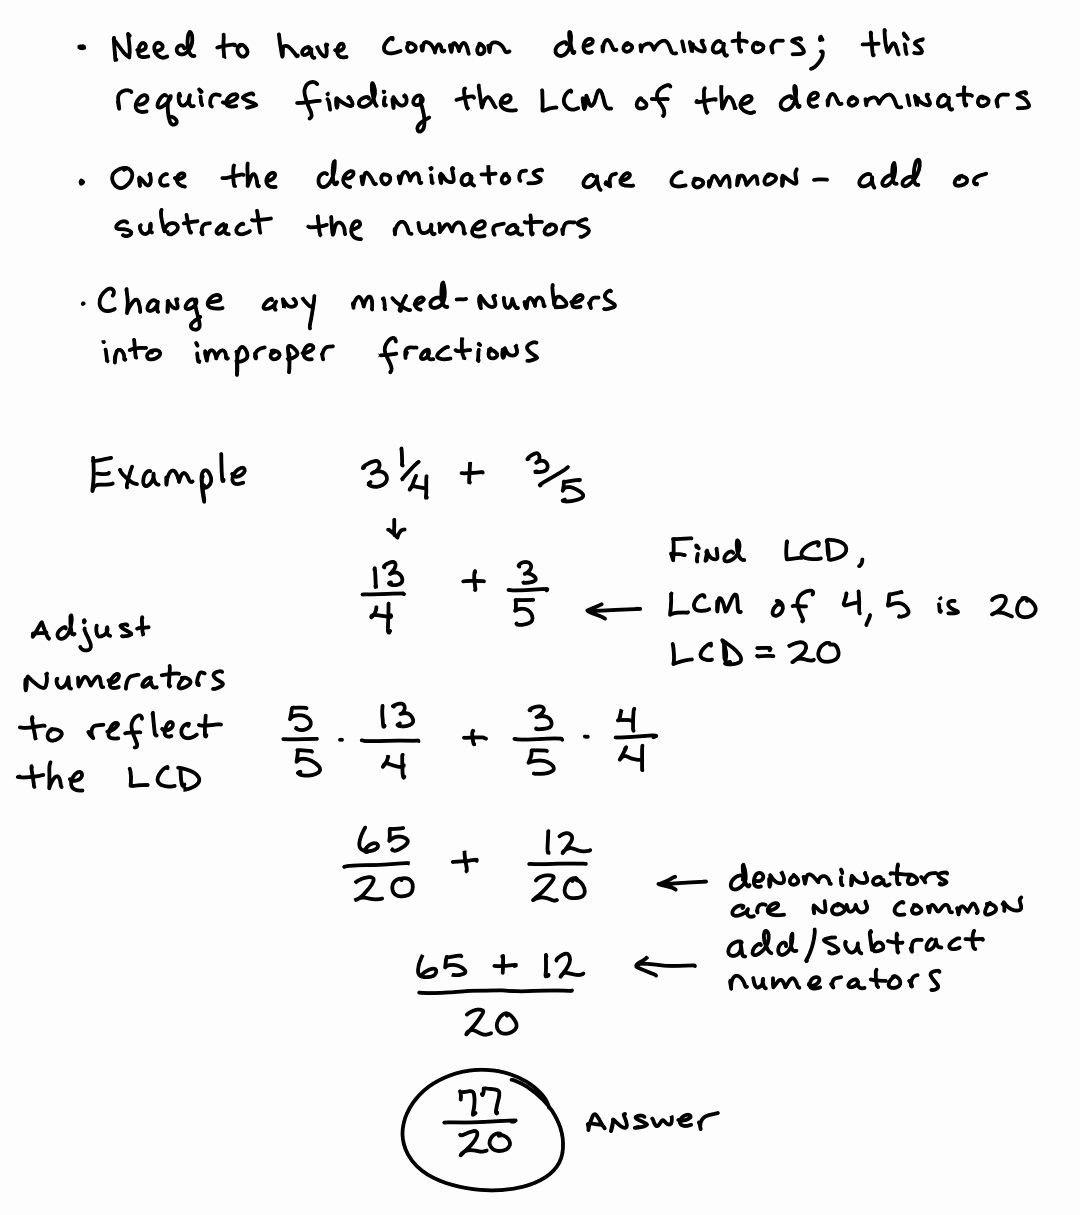 · Need to have common denominators; this
requires finding the LCM of the denominators
· Once the denominators are common - add or
subtract the numerators
· Change any mixed-numbers
into improper fractions
Example 3 1/4 + 3/5
↓
13/4 + 3/5 ← Find LCD,
LCM of 4, 5 is 20
LCD = 20
Adjust
Numerators
to reflect
the LCD
5/5 · 13/4 + 3/5 · 4/4
65/20 + 12/20 ← denominators
are now common
65 + 12 ← add/subtract
numerators
20
77/20 Answer